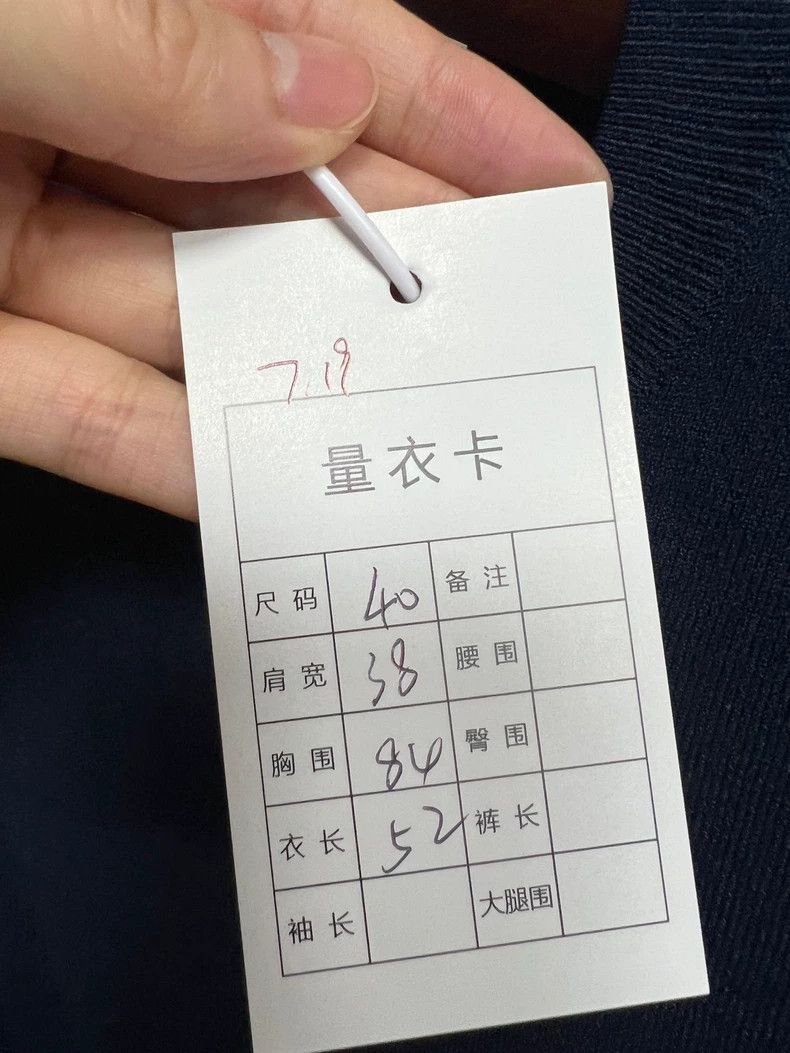 7.19
量衣卡
尺码 40 备注
肩宽 38 腰围
胸围 84 臀围
衣长 52 裤长
袖长 大腿围